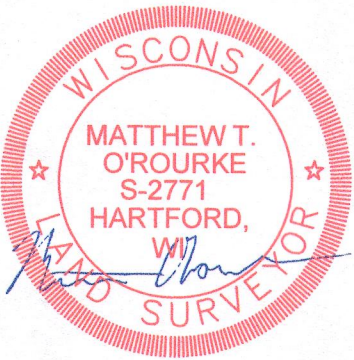 WISCONSIN
MATTHEW T.
O'ROURKE
S-2771
HARTFORD,
WI
LAND SURVEYOR